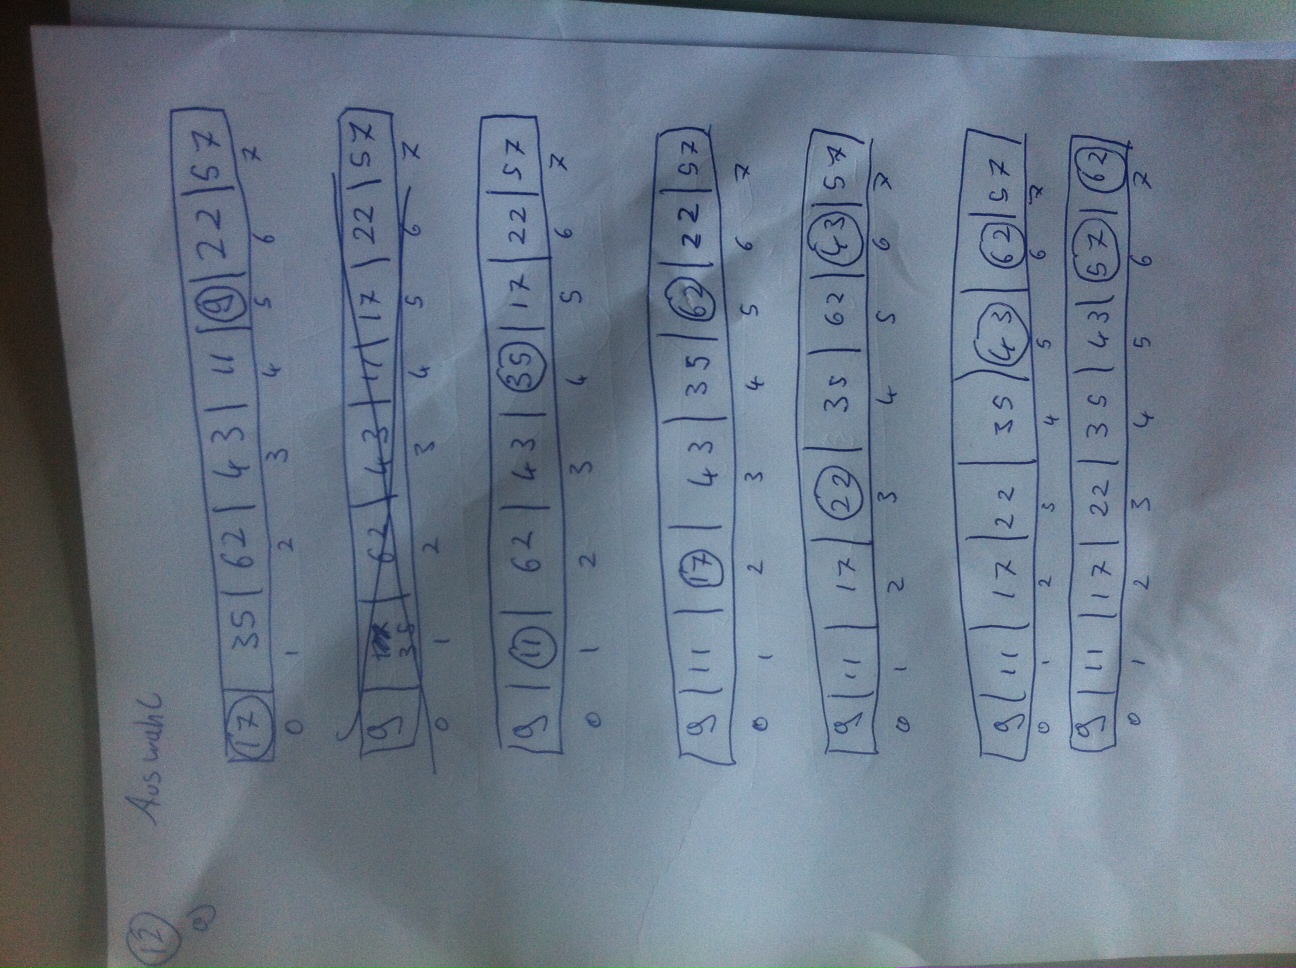 12 Auswahl
a)
17 35 62 43 11 9 22 57
0 1 2 3 4 5 6 7
9 35 62 43 11 17 22 57
0 1 2 3 4 5 6 7
9 11 62 43 35 17 22 57
0 1 2 3 4 5 6 7
9 11 17 43 35 62 22 57
0 1 2 3 4 5 6 7
9 11 17 22 35 62 43 57
0 1 2 3 4 5 6 7
9 11 17 22 35 43 62 57
0 1 2 3 4 5 6 7
9 11 17 22 35 43 57 62
0 1 2 3 4 5 6 7